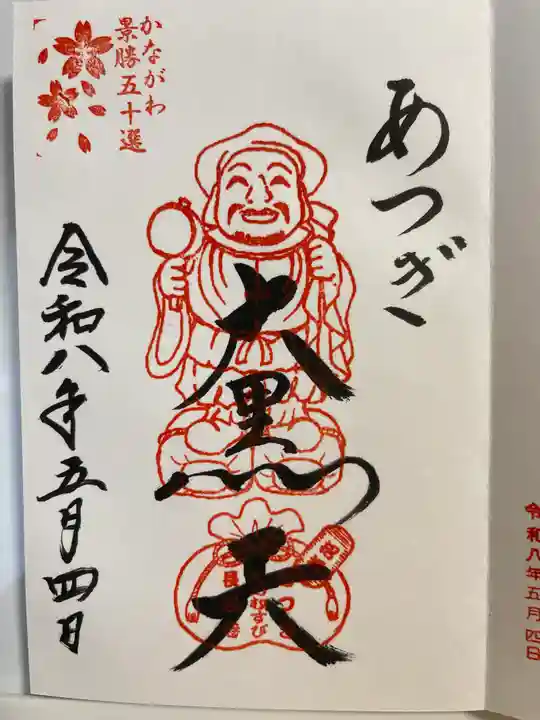 あつぎ
大黒天
かながわ
景勝五十選
令和八年五月四日
令和八年五月四日